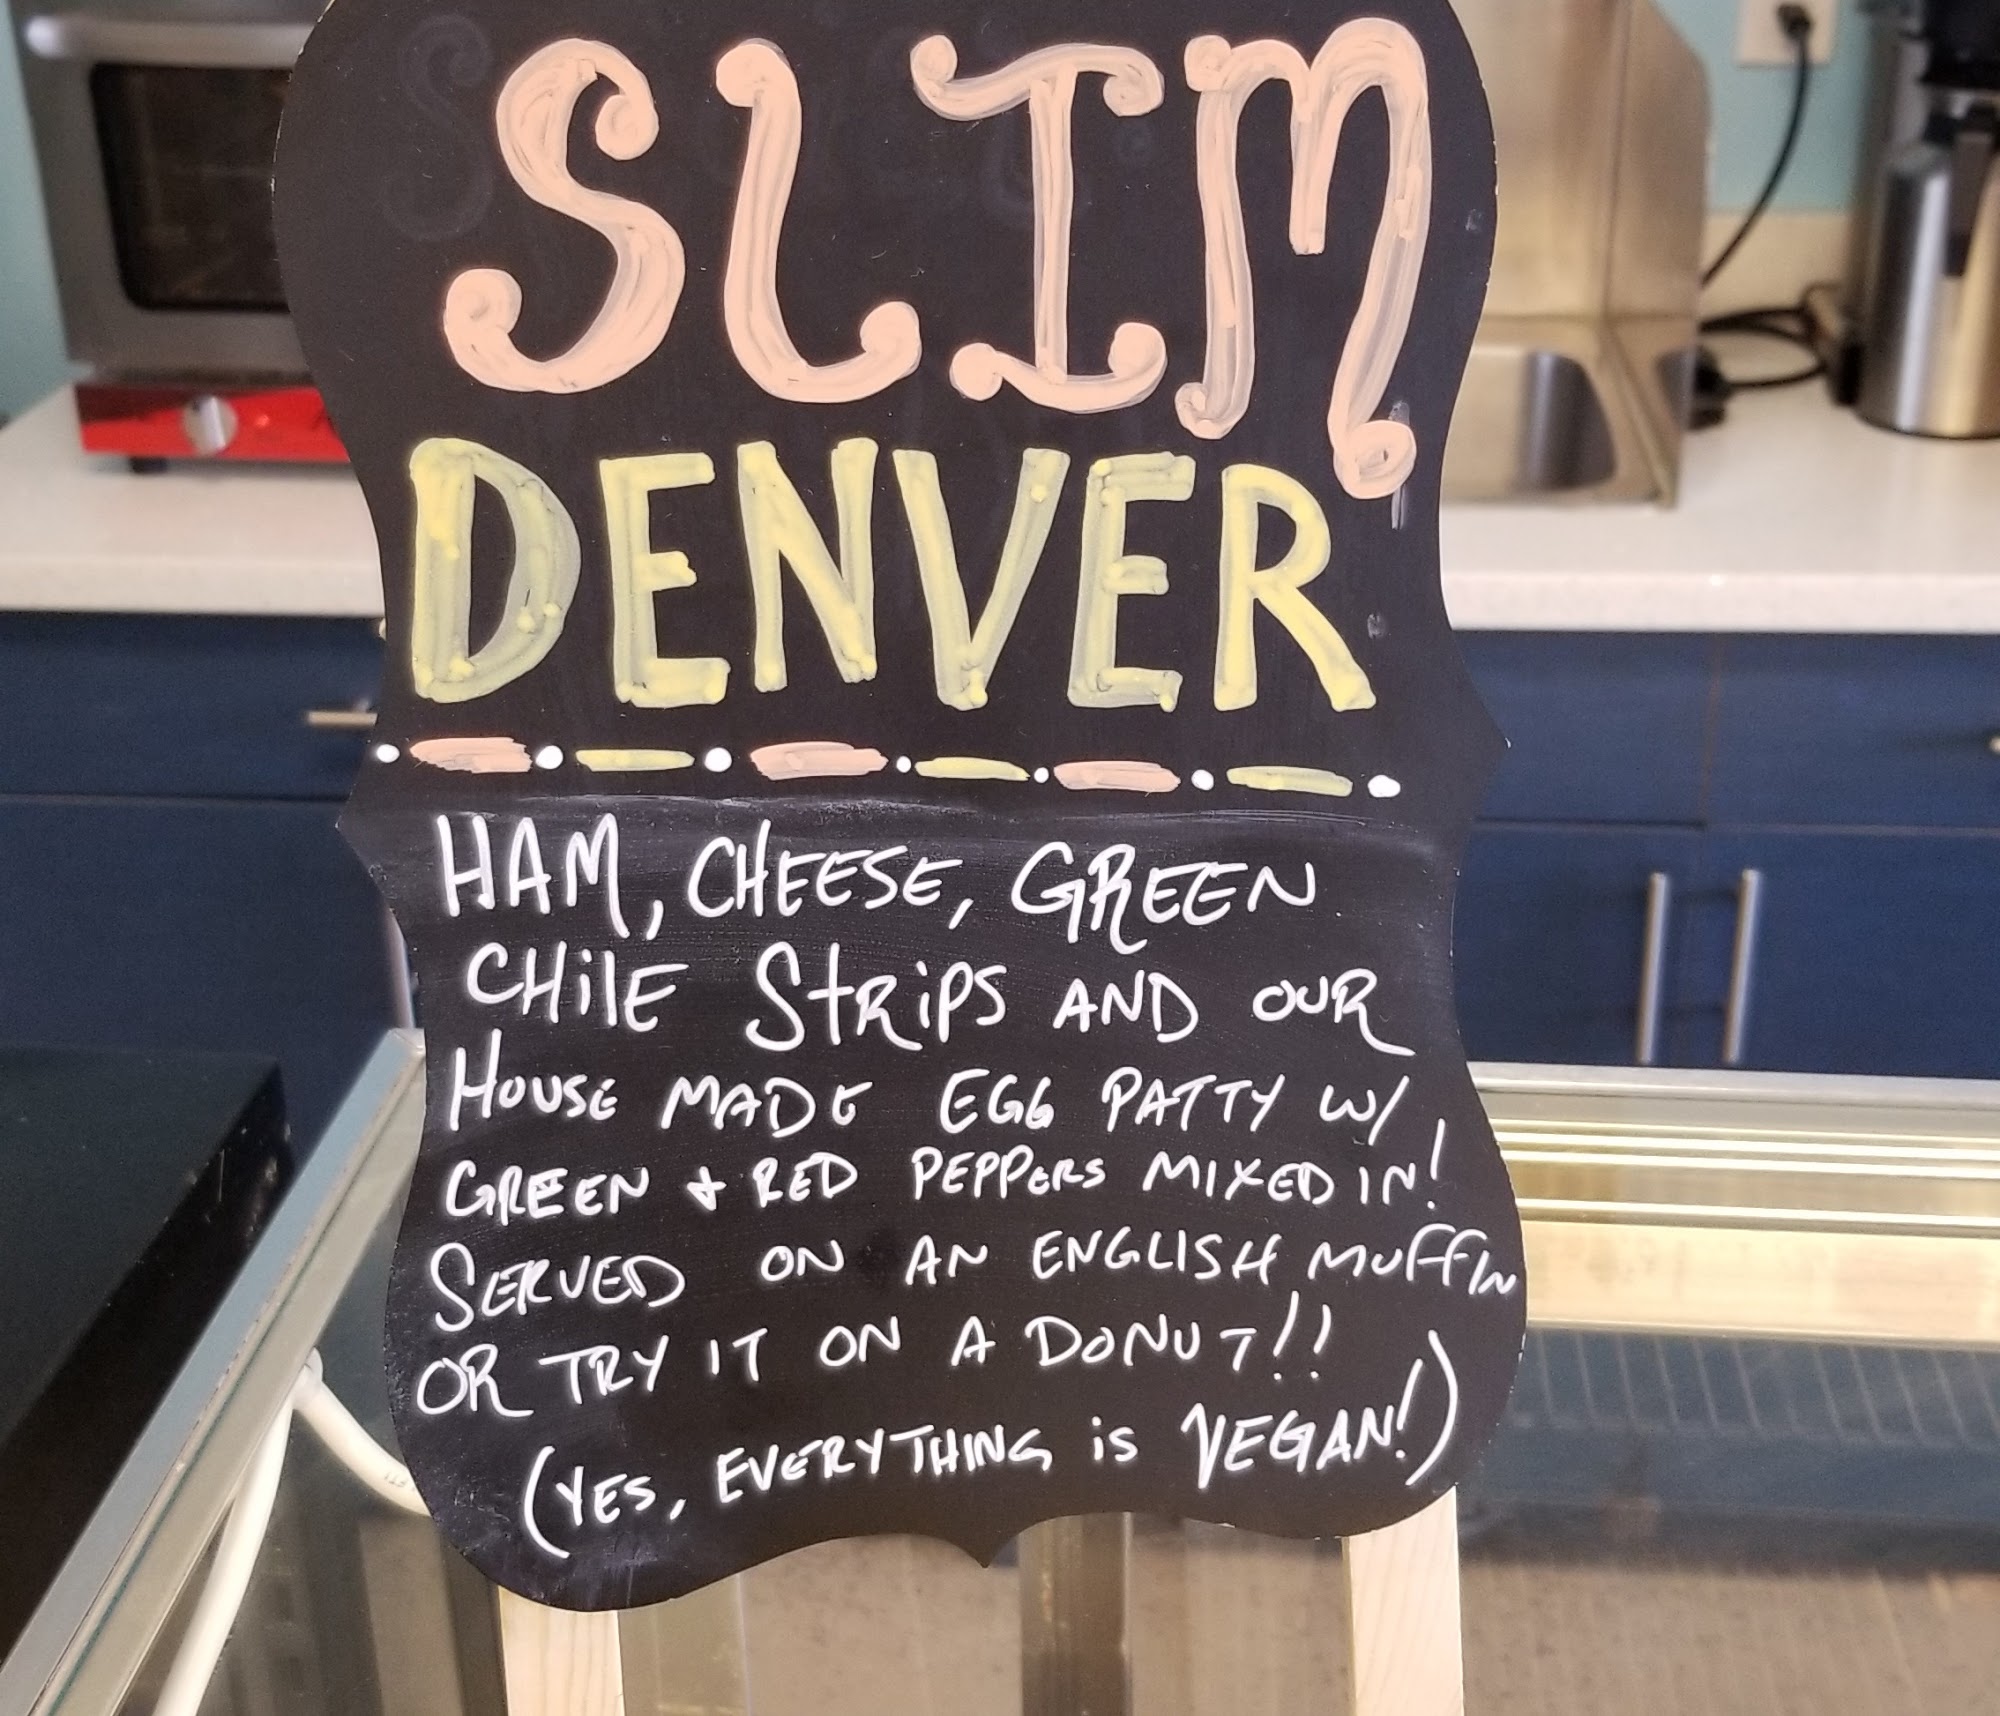 SLIM
DENVER
HAM, CHEESE, GREEN
CHILE STRIPS AND OUR
HOUSE MADE EGG PATTY W/
GREEN + RED PEPPERS MIXED IN!
SERVED ON AN ENGLISH MUFFIN
OR TRY IT ON A DONUT!!
(YES, EVERYTHING is VEGAN!)